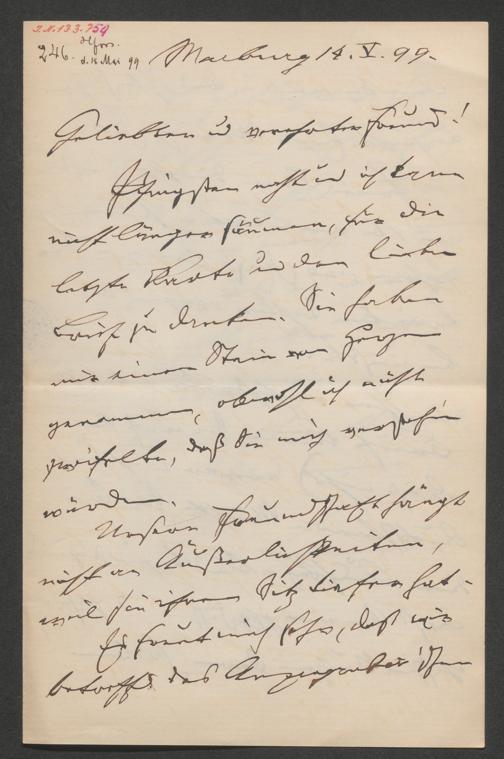 I.N.133.754
246. d. 15 Mai 99
Marburg 14. V. 99.
Geliebter u verehrter Freund!
Pfingsten naht und ich kann
nicht länger säumen, für die
letzte Karte und den lieben
Brief zu danken. Sie haben
mir einen Stein vom Herzen
genommen, obwohl ich nicht
zweifelte, daß Sie mich verstehn
würden.
Unsere Freundschaft hängt
nicht an Äußerlichkeiten,
weil sie ihren Sitz tiefer hat.
Es freut mich sehr, daß wir
betreffs des